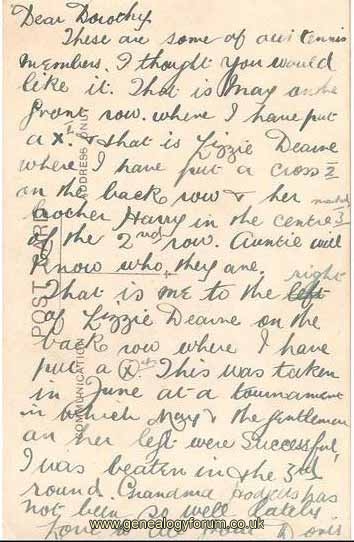 Dear Dorothy
These are some of our tennis
members. I thought you would
like it. That is May on the
front row where I have put
a X. & that is Lizzie Dearne
where I have put a cross 2
on the back row & her
brother Harry in the centre marked 3
of the 2nd row. Auntie will
know who they are.
That is me to the left right
of Lizzie Dearne on the
back row where I have
put a X. This was taken
in June at a tournament
in which May & the gentleman
on her left were successful,
I was beaten in the 3rd
round. Grandma has
not been so well lately
Love to all from
POST CARD
ADDRESS ONLY
COMMUNICATION
www.genealogyforum.co.uk